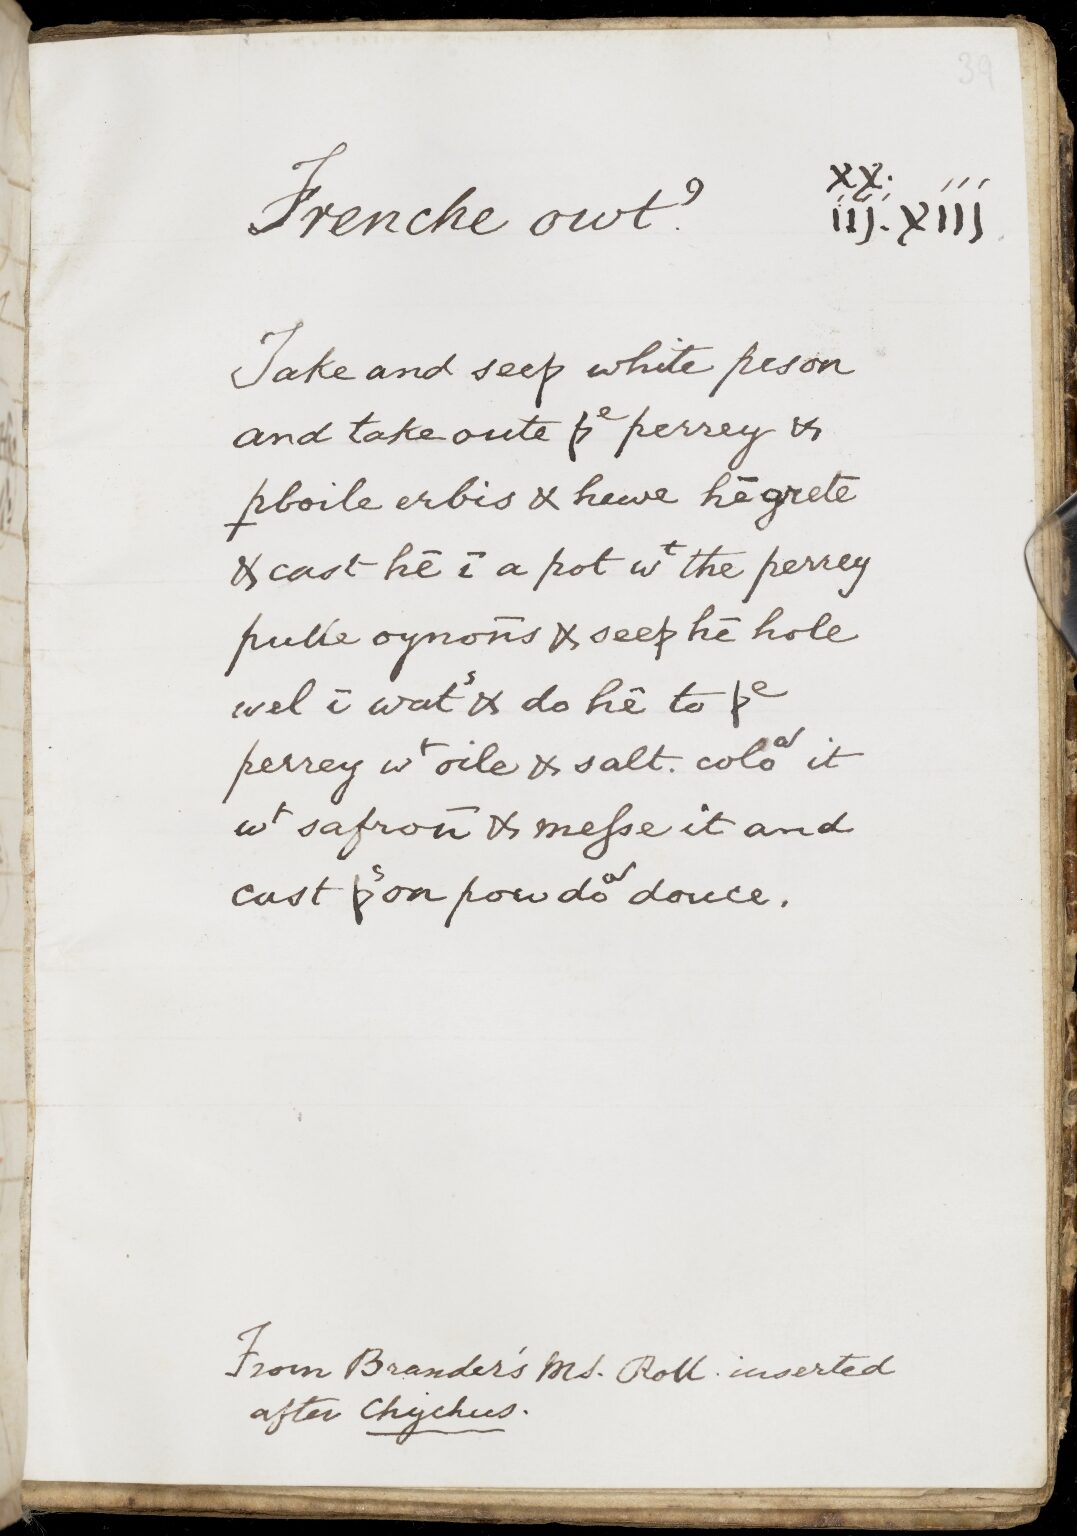 39
Frenche owtꝰ.
xx.
iij. xiij
Take and seeþ white peson
and take oute þe perrey &
ꝑboile erbis & hewe hē grete
& cast hē ī a pot wt the perrey
pulle oynon̄s & seeþ hē hole
wel ī wats & do hē to þe
perrey wt oile & salt. colour it
wt safron̄ & messe it and
cast þson powdour douce.
From Brander's MS. Roll. inserted
after Chychus.